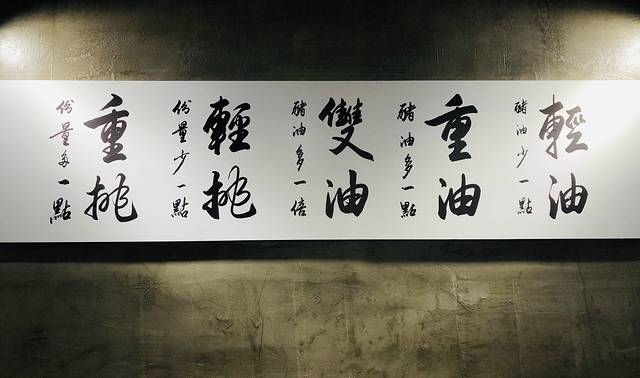 輕油
豬油少一點
重油
豬油多一點
雙油
豬油多一倍
輕挑
份量少一點
重挑
份量多一點